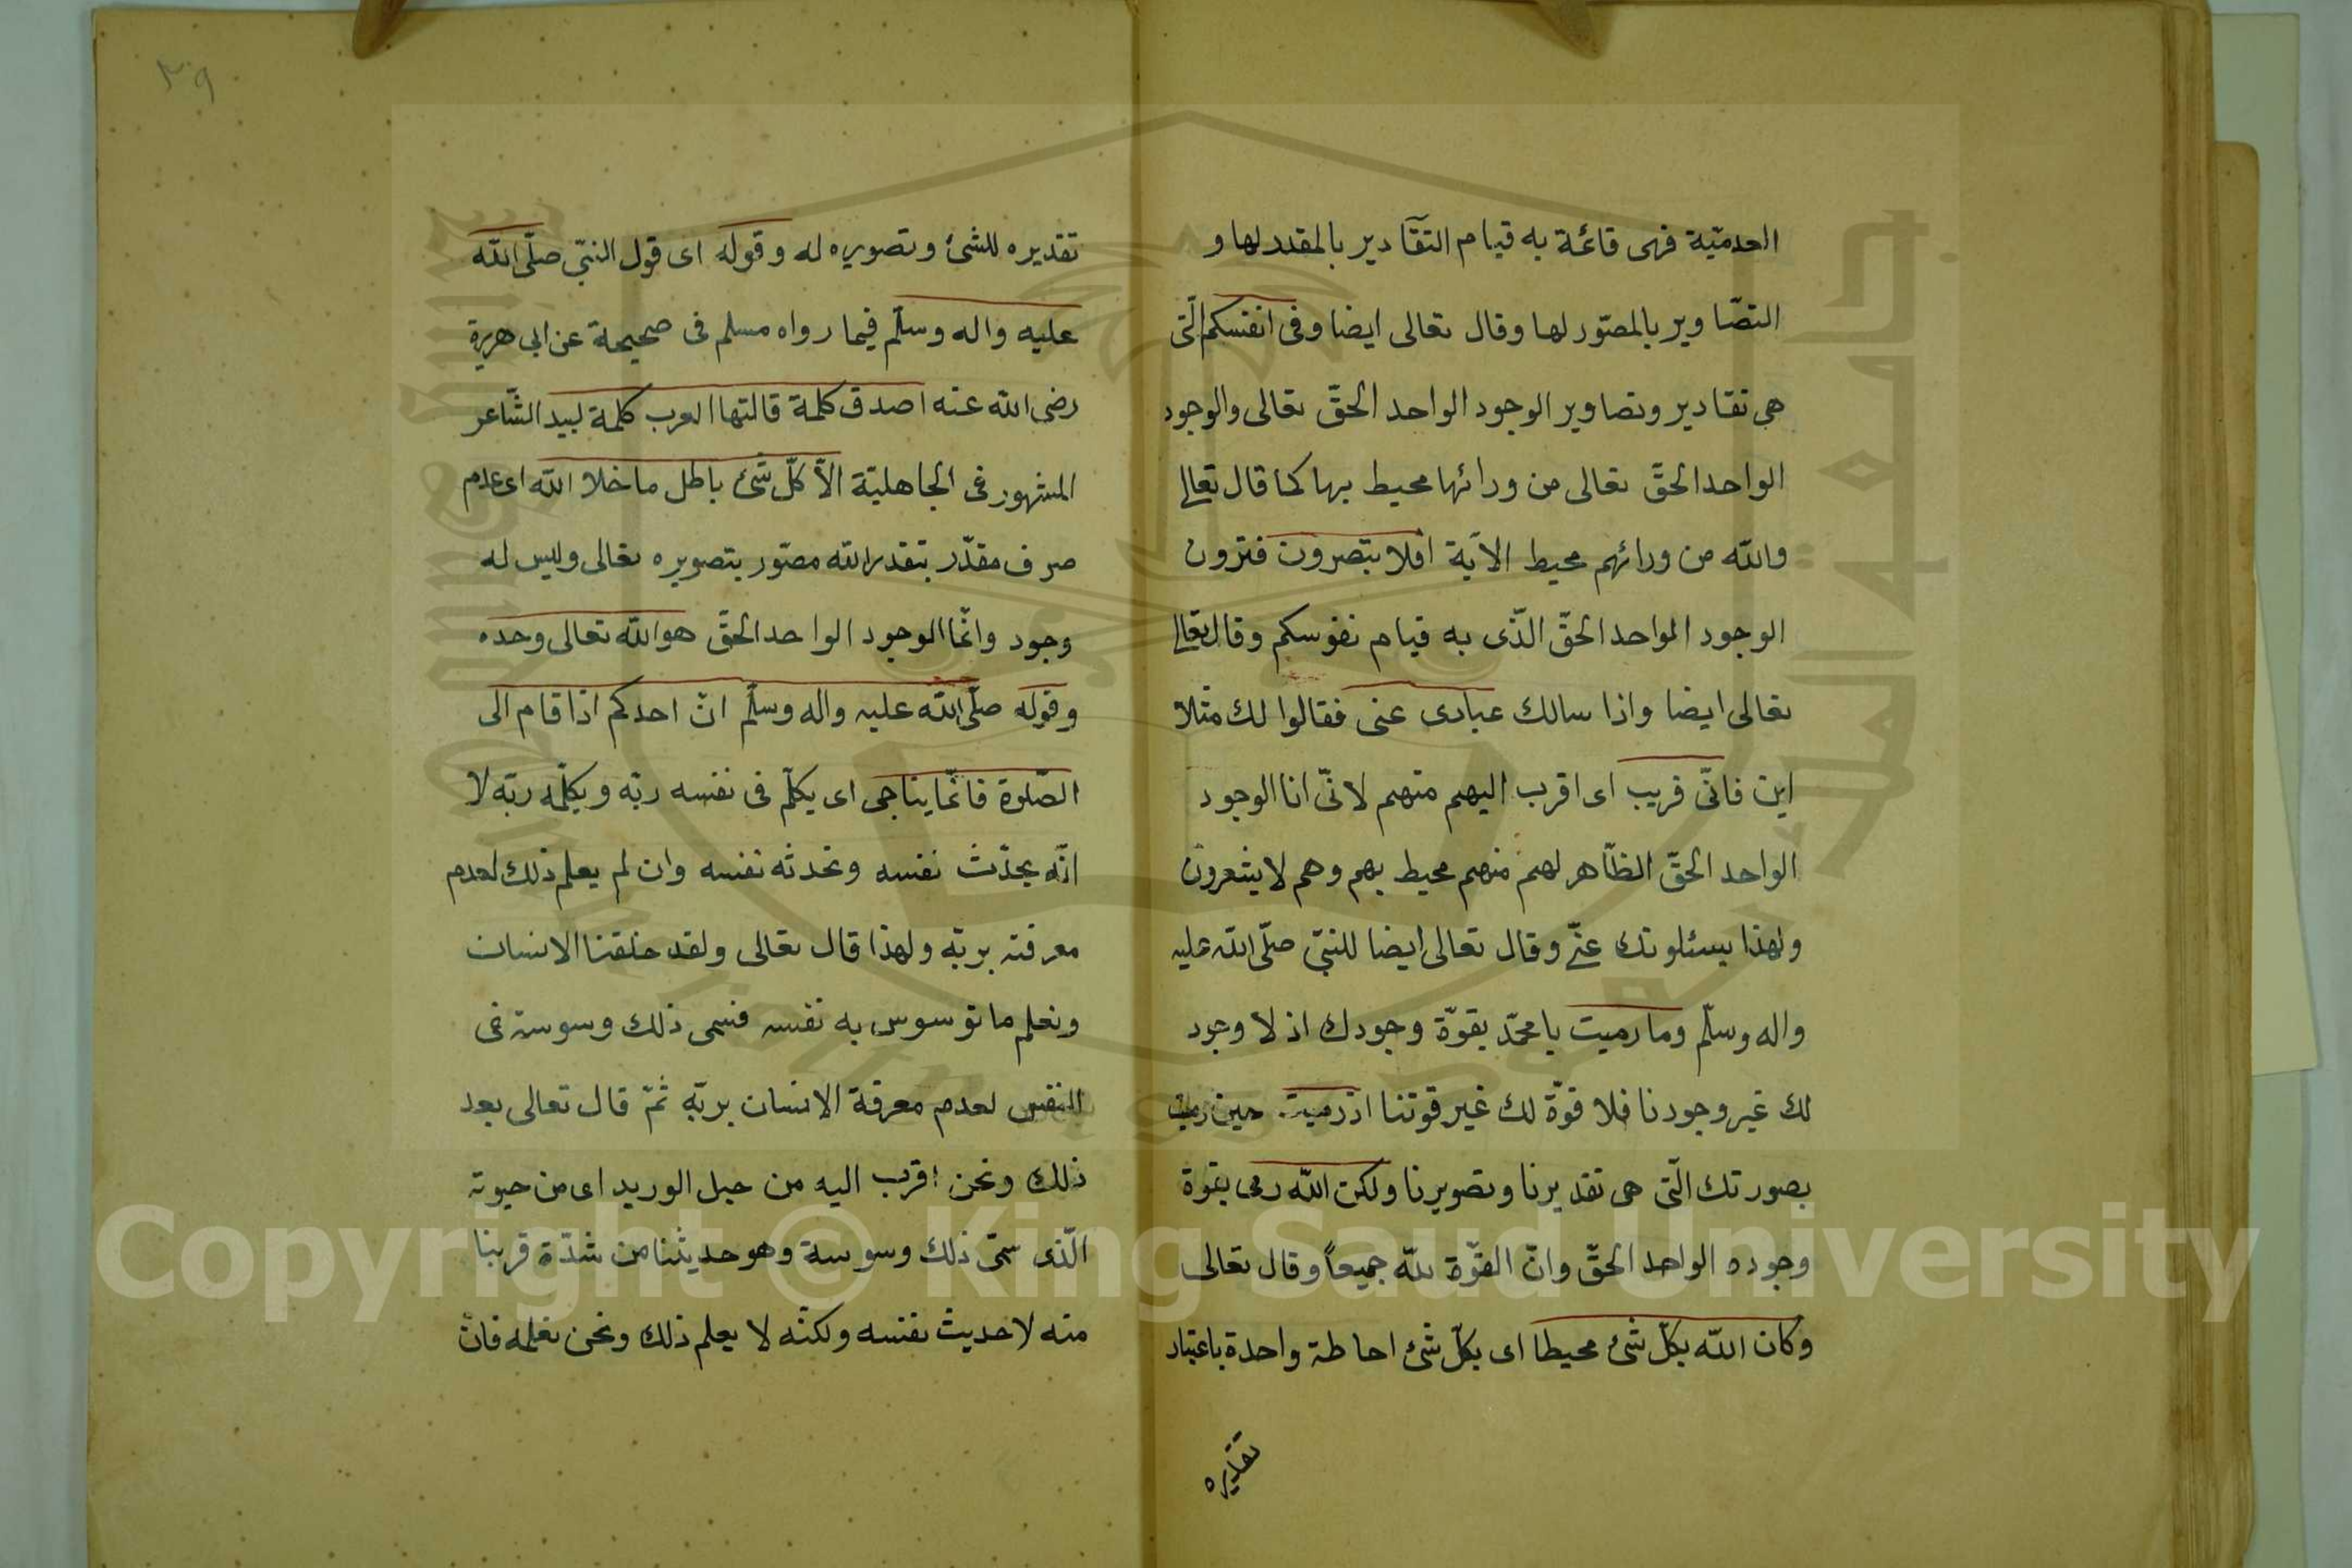 العدميّة فهى قائمة به قيام التقادير بالمقدر لها و
التصّاوير بالمصّور لها وقال تعالى ايضا وفى انفسكم الّتى
هى تقادير وتصاوير الوجود الواحد الحقّ تعالى والوجود
الواحد الحقّ تعالى من ورائها محيط بها كما قال تعالى
والله من ورائهم محيط الاية افلا تبصرون فترون
الوجود الواحد الحقّ الذّى به قيام نفوسكم وقال تعالى
تعالى ايضا واذا سالك عبادى عنى فقالوا لك مثلا
اين فانّى قريب اى اقرب اليهم منهم لانّى انا الوجود
الواحد الحقّ الظّاهر لهم منهم محيط بهم وهم لا يشعرون
ولهذا يسئلونك عنّى وقال تعالى ايضا للنبىّ صلّى الله عليه
واله وسلّم وما رميت يا محمّد بقوّة وجودك اذ لا وجود
لك غير وجودنا فلا قوّة لك غير قوتنا اذ رميت حين رميت
بصورتك الّتى هى تقديرنا وتصويرنا ولكن الله رمى بقوة
وجوده الواحد الحقّ وانّ القوّة لله جميعاً وقال تعالى
وكان الله بكلّ شئ محيطا اى بكلّ شئ احاطة واحدة باعتبار
تقديره
٣٩
تقديره للشئ وتصويره له وقوله اى قول النبىّ صلّى الله
عليه واله وسلّم فيما رواه مسلم فى صحيحة عن ابى هريرة
رضى الله عنه اصدق كلمة قالتها العرب كلمة لبيد الشّاعر
المشهور فى الجاهليّة الاّ كلّ شئ باطل ما خلا الله اى عدم
صرف مقدّر بتقدير الله مصّور بتصويره تعالى وليس له
وجود وانّما الوجود الواحد الحقّ هو الله تعالى وحده
وقوله صلّى الله عليه واله وسلّم انّ احدكم اذا قام الى
الصّلوة فانّما يناجى اى يكلّم فى نفسه ربّه ويكلّمه ربّه لا
انّه يحدّث نفسه وتحدثه نفسه وان لم يعلم ذلك لعدم
معرفته بربّه ولهذا قال تعالى ولقد خلقنا الانسان
ونعلم ما توسوس به نفسه فسمى ذلك وسوسة فى
النفس لعدم معرفة الانسان بربّه ثمّ قال تعالى بعد
ذلك ونحن اقرب اليه من حبل الوريد اى من حيوته
الّذى سمّى ذلك وسوسة وهو حديثنا من شدّة قربنا
منه لا حديث نفسه ولكنّه لا يعلم ذلك ونحن نعلمه فانّ
Copyright © King Saud University